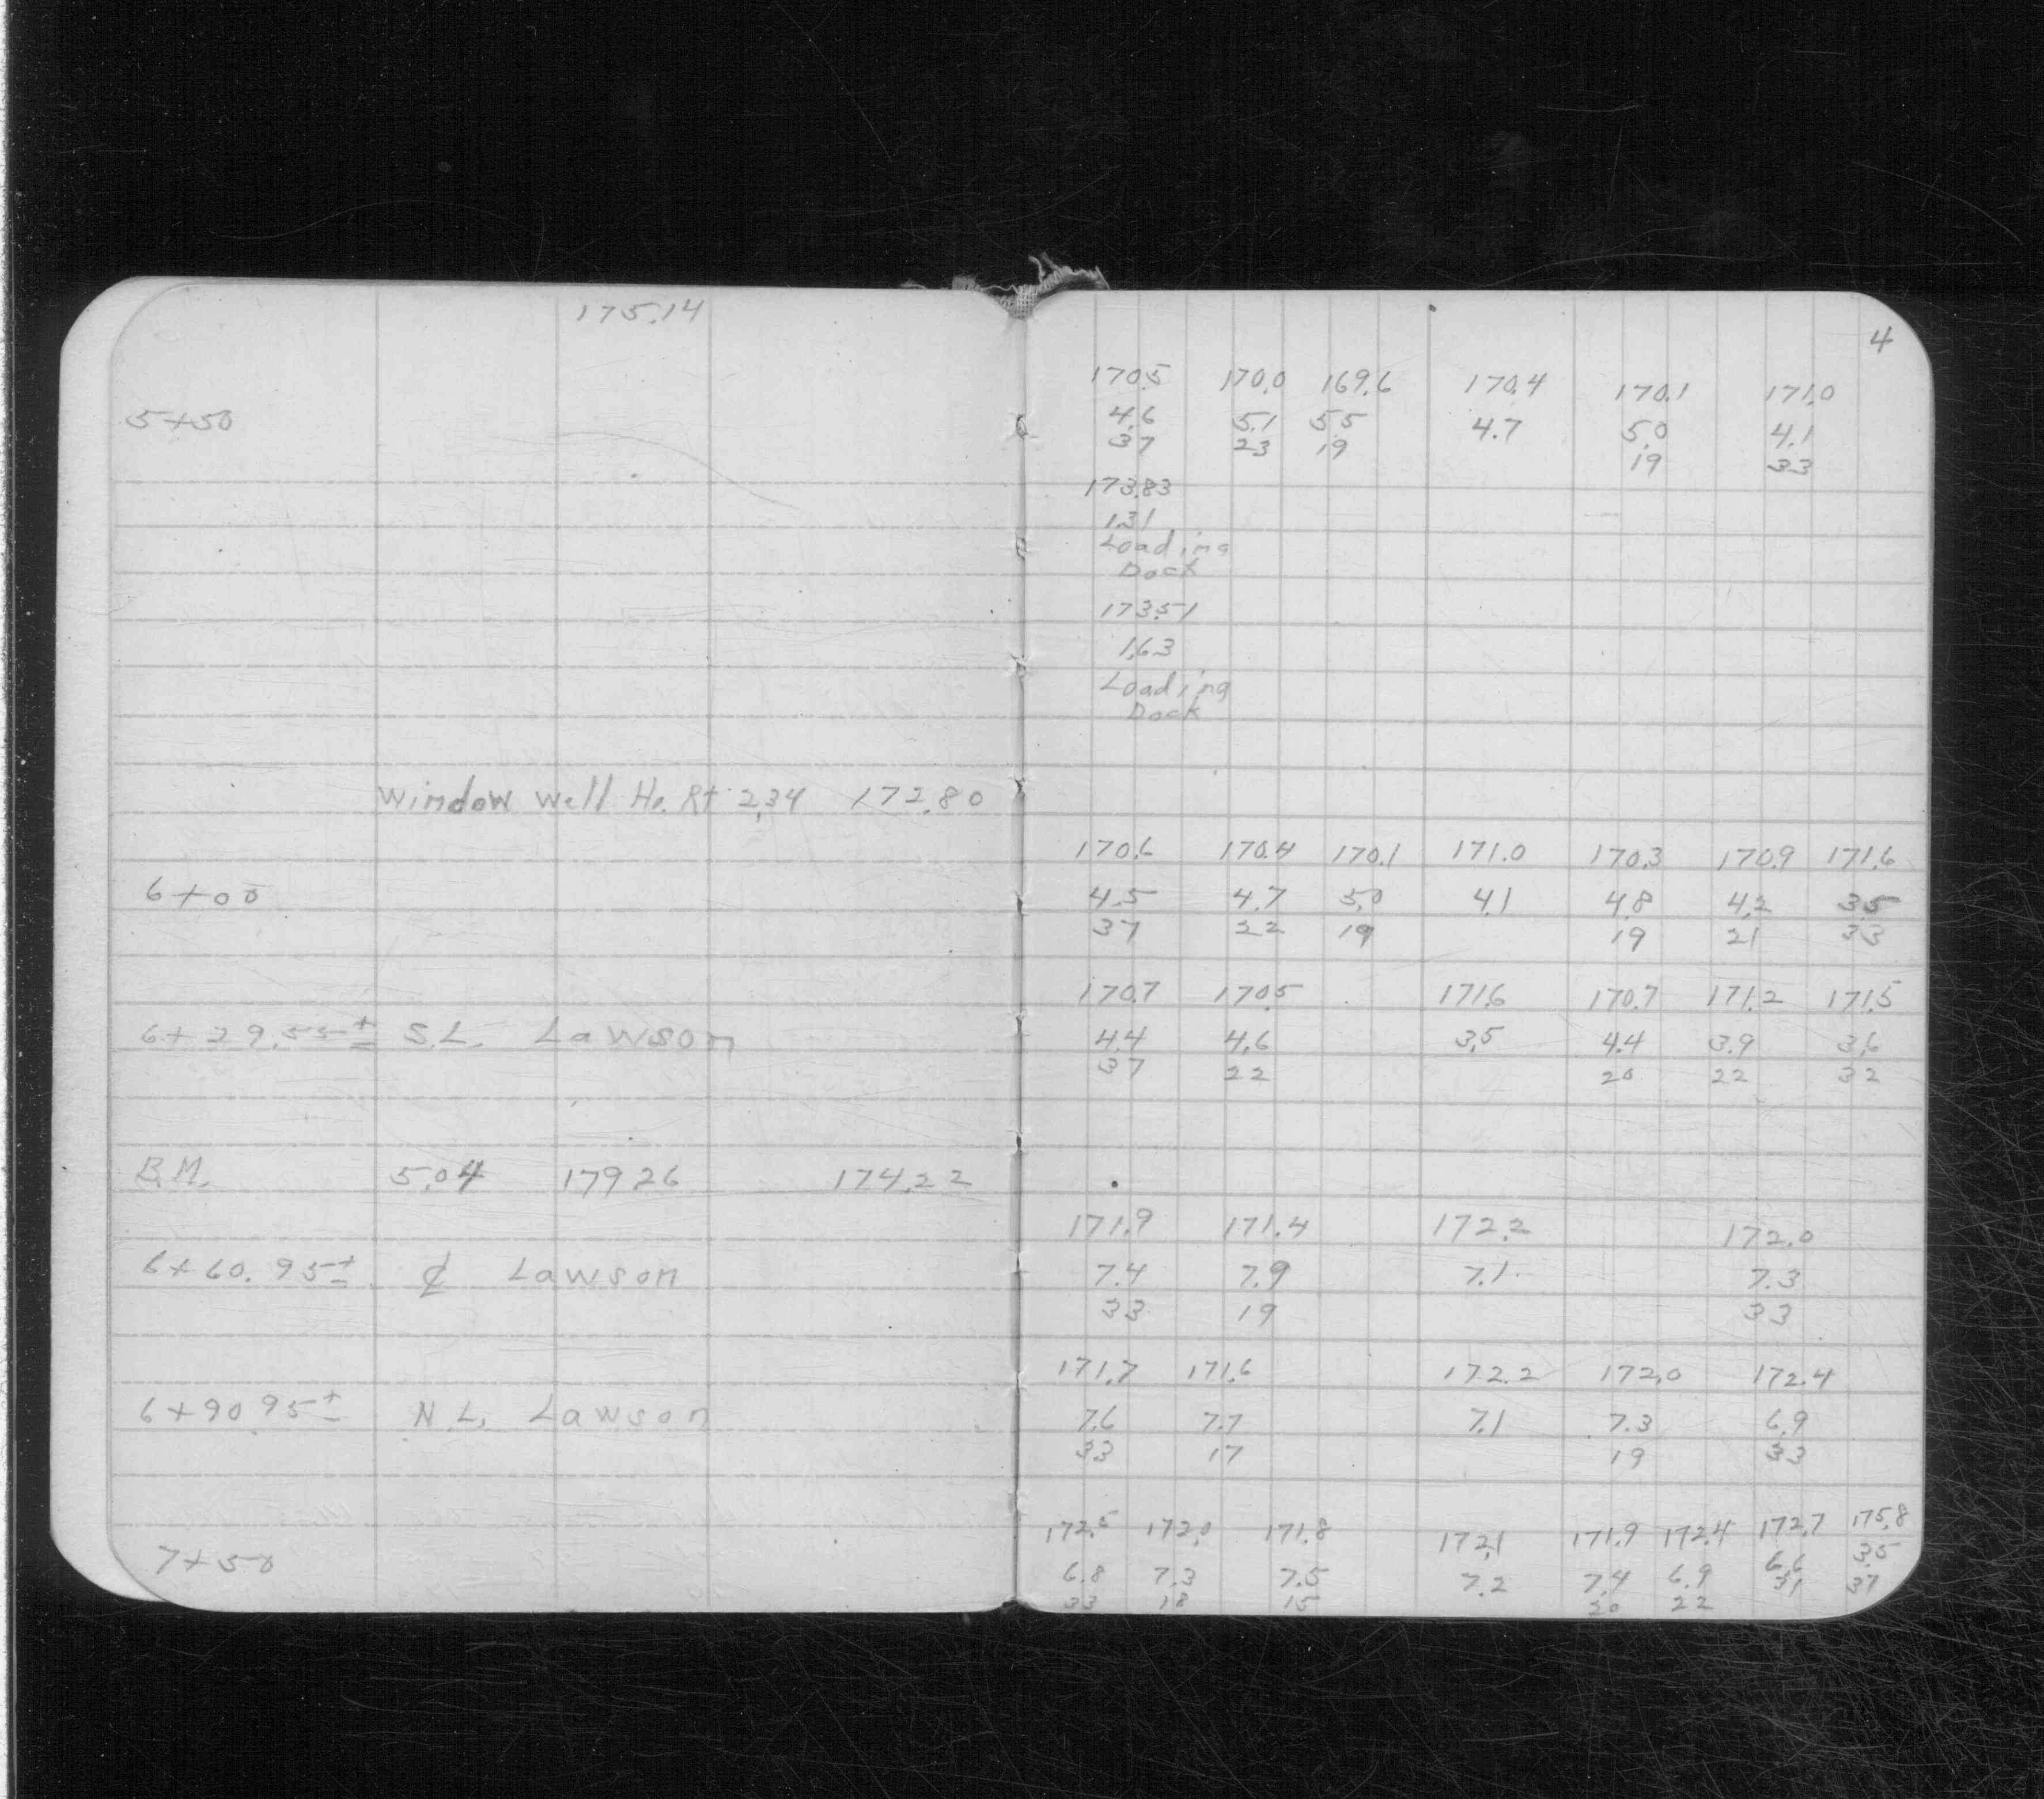 175.14
5+50
Window Well Ho. Rt 2.34 172.80
6+00
6+29.55± S.L. Lawson
B.M. 5.04 179.26 174.22
6+60.95± ₵ Lawson
6+90.95± N.L. Lawson
7+50
4
170.5 170.0 169.6 170.4 170.1 171.0
4.6 5.1 5.5 4.7 5.0 4.1
37 23 19 19 33
173.83
1.31
Loading
Dock
173.51
1.63
Loading
Dock
170.6 170.4 170.1 171.0 170.3 170.9 171.6
4.5 4.7 5.0 4.1 4.8 4.2 3.5
37 22 19 19 21 33
170.7 170.5 171.6 170.7 171.2 171.5
4.4 4.6 3.5 4.4 3.9 3.6
37 22 20 22 32
171.9 171.4 172.2 172.0
7.4 7.9 7.1 7.3
33 19 33
171.7 171.6 172.2 172.0 172.4
7.6 7.7 7.1 7.3 6.9
33 17 19 33
172.5 172.0 171.8 172.1 171.9 172.4 172.7 175.8
6.8 7.3 7.5 7.2 7.4 6.9 6.6 3.5
33 18 15 20 22 31 37